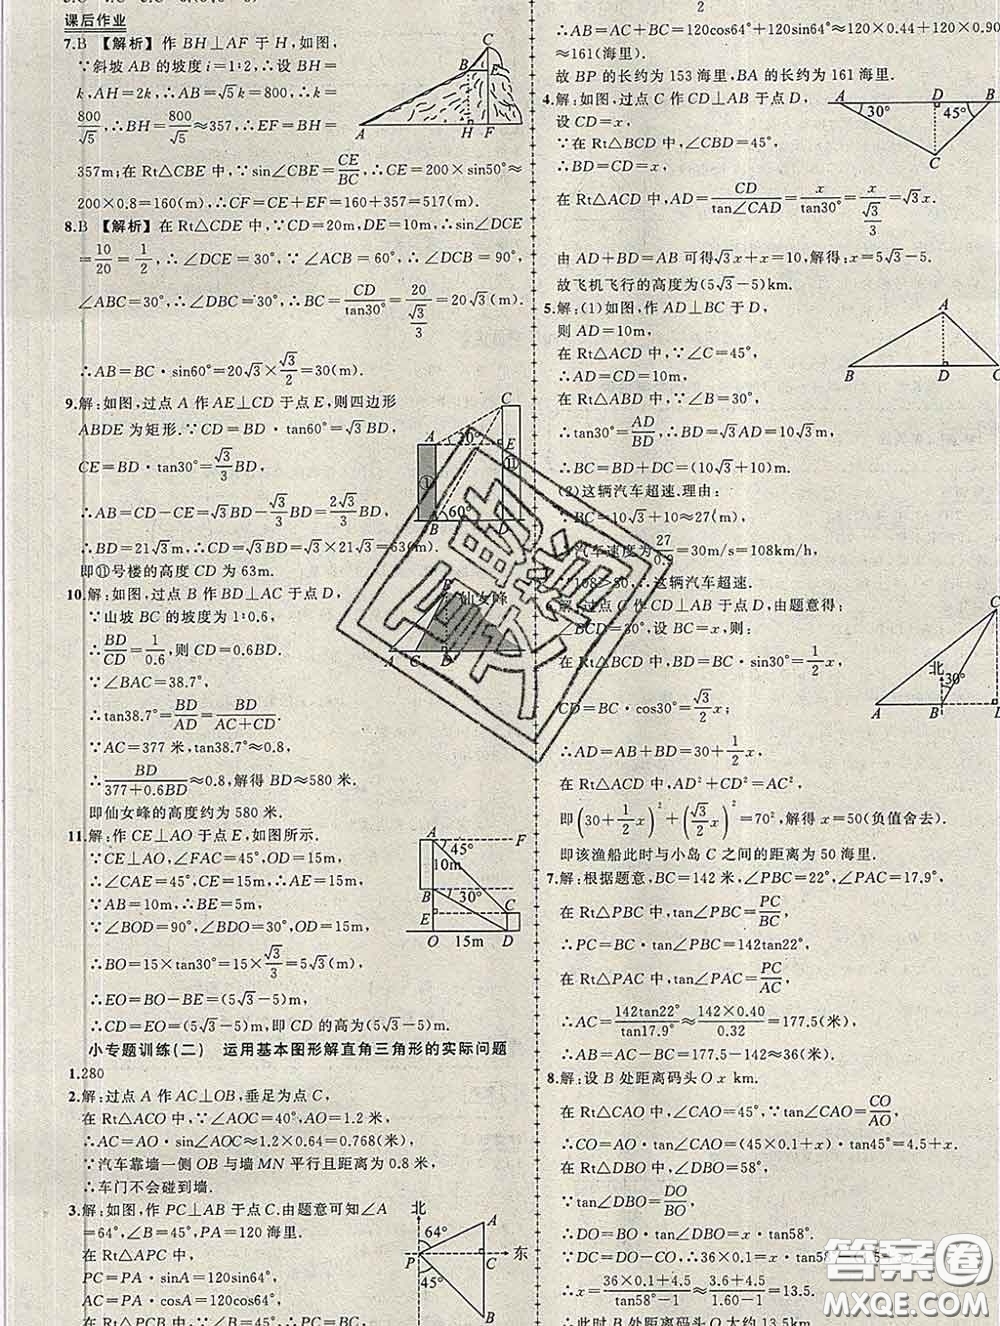 课后作业
7.B 【解析】作 BH⊥AF 于 H,如图,
∵斜坡 AB 的坡度 i=1∶2,∴设 BH=
k,AH=2k,∴AB=√5k=800,∴k=
800/√5,∴BH=800/√5≈357,∴EF=BH=
357m;在 Rt△CBE 中,∵sin∠CBE=CE/BC,∴CE=200×sin50°≈
200×0.8=160(m),∴CF=CE+EF=160+357=517(m).
8.B 【解析】在 Rt△CDE 中,∵CD=20m,DE=10m,∴sin∠DCE
=10/20=1/2,∴∠DCE=30°,∵∠ACB=60°,∴∠DCB=90°,
∠ABC=30°,∴∠DBC=30°,∴BC=CD/tan30°=20/(√3/3)=20√3(m).
∴AB=BC·sin60°=20√3×√3/2=30(m).
9.解:如图,过点 A 作 AE⊥CD 于点 E,则四边形
ABDE 为矩形.∵CD=BD·tan60°=√3BD,
CE=BD·tan30°=√3/3BD,
∴AB=CD-CE=√3BD-√3/3BD=2√3/3BD,
∴BD=21√3m,∴CD=√3BD=√3×21√3=63(m).
即⑪号楼的高度 CD 为 63m.
10.解:如图,过点 B 作 BD⊥AC 于点 D,
∵山坡 BC 的坡度为 1∶0.6,
∴BD/CD=1/0.6,则 CD=0.6BD.
∵∠BAC=38.7°,
∴tan38.7°=BD/AD=BD/(AC+CD).
∵AC=377 米,tan38.7°≈0.8,
∴BD/(377+0.6BD)≈0.8,解得 BD≈580 米.
即仙女峰的高度约为 580 米.
11.解:作 CE⊥AO 于点 E,如图所示.
∵CE⊥AO,∠FAC=45°,OD=15m,
∴∠CAE=45°,CE=15m,
∴AE=15m,∴BE=5m,
∵∠BOD=90°,∠BDO=30°,OD=15m,
∴BO=15×tan30°=15×√3/3=5√3(m),
∴EO=BO-BE=(5√3-5)m,
∴CD=EO=(5√3-5)m,即 CD 的高为(5√3-5)m.
小专题训练(二) 运用基本图形解直角三角形的实际问题
1.280
2.解:过点 A 作 AC⊥OB,垂足为点 C,
在 Rt△ACO 中,∵∠AOC=40°,AO=1.2 米,
∴AC=AO·sin∠AOC≈1.2×0.64=0.768(米),
∵汽车靠墙一侧 OB 与墙 MN 平行且距离为 0.8 米,
∴车门不会碰到墙.
3.解:如图,作 PC⊥AB 于点 C.由题意可知∠A
=64°,∠B=45°,PA=120 海里.
在 Rt△APC 中,
PC=PA·sinA=120sin64°,
AC=PA·cosA=120cos64°,
在 Rt△PCB 中,∵∠B=45°,
∴AB=AC+BC=120cos64°+120sin64°≈120×0.44+120×0.90
≈161(海里).
故 BP 的长约为 153 海里,BA 的长约为 161 海里.
4.解:如图,过点 C 作 CD⊥AB 于点 D,
设 CD=x,
∵在 Rt△BCD 中,∠CBD=45°,
∴BD=CD=x,
在 Rt△ACD 中,AD=CD/tan∠CAD=x/tan30°=x/(√3/3)=√3x,
由 AD+BD=AB 可得√3x+x=10,解得:x=5√3-5.
故飞机飞行的高度为(5√3-5)km.
5.解:(1)如图,作 AD⊥BC 于 D,
则 AD=10m,
在 Rt△ACD 中,∵∠C=45°,
∴AD=CD=10m,
在 Rt△ABD 中,∵∠B=30°,
∴tan30°=AD/BD,∴BD=√3AD=10√3m,
∴BC=BD+DC=(10√3+10)m.
(2)这辆汽车超速.理由:
∵BC=10√3+10≈27(m),
∴汽车速度为27/0.9=30m/s=108km/h,
∵108>80,∴这辆汽车超速.
6.解:过点 C 作 CD⊥AB 于点 D,由题意得:
∠BCD=30°,设 BC=x,则:
在 Rt△BCD 中,BD=BC·sin30°=1/2x,
CD=BC·cos30°=√3/2x;
∴AD=AB+BD=30+1/2x,
在 Rt△ACD 中,AD²+CD²=AC²,
即(30+1/2x)²+(√3/2x)²=70²,解得 x=50(负值舍去).
即该渔船此时与小岛 C 之间的距离为 50 海里.
7.解:根据题意,BC=142 米,∠PBC=22°,∠PAC=17.9°,
在 Rt△PBC 中,tan∠PBC=PC/BC,
∴PC=BC·tan∠PBC=142tan22°,
在 Rt△PAC 中,tan∠PAC=PC/AC,
∴AC=142tan22°/tan17.9°≈142×0.40/0.32=177.5(米),
∴AB=AC-BC=177.5-142≈36(米)
8.解:设 B 处距离码头 O x km.
在 Rt△CAO 中,∠CAO=45°,∵tan∠CAO=CO/AO,
∴CO=AO·tan∠CAO=(45×0.1+x)·tan45°=4.5+x.
在 Rt△DBO 中,∠DBO=58°,
∵tan∠DBO=DO/BO,
∴DO=BO·tan∠DBO=x·tan58°.
∵DC=DO-CO,∴36×0.1=x·tan58°
∴x=(36×0.1+4.5)/(tan58°-1)≈(36×0.1+4.5)/(1.60-1)=13.5.
∴此时 B 处距离码头 O 大约 13.5km.
仙女峰
北
东
答案圈
MXQE.COM